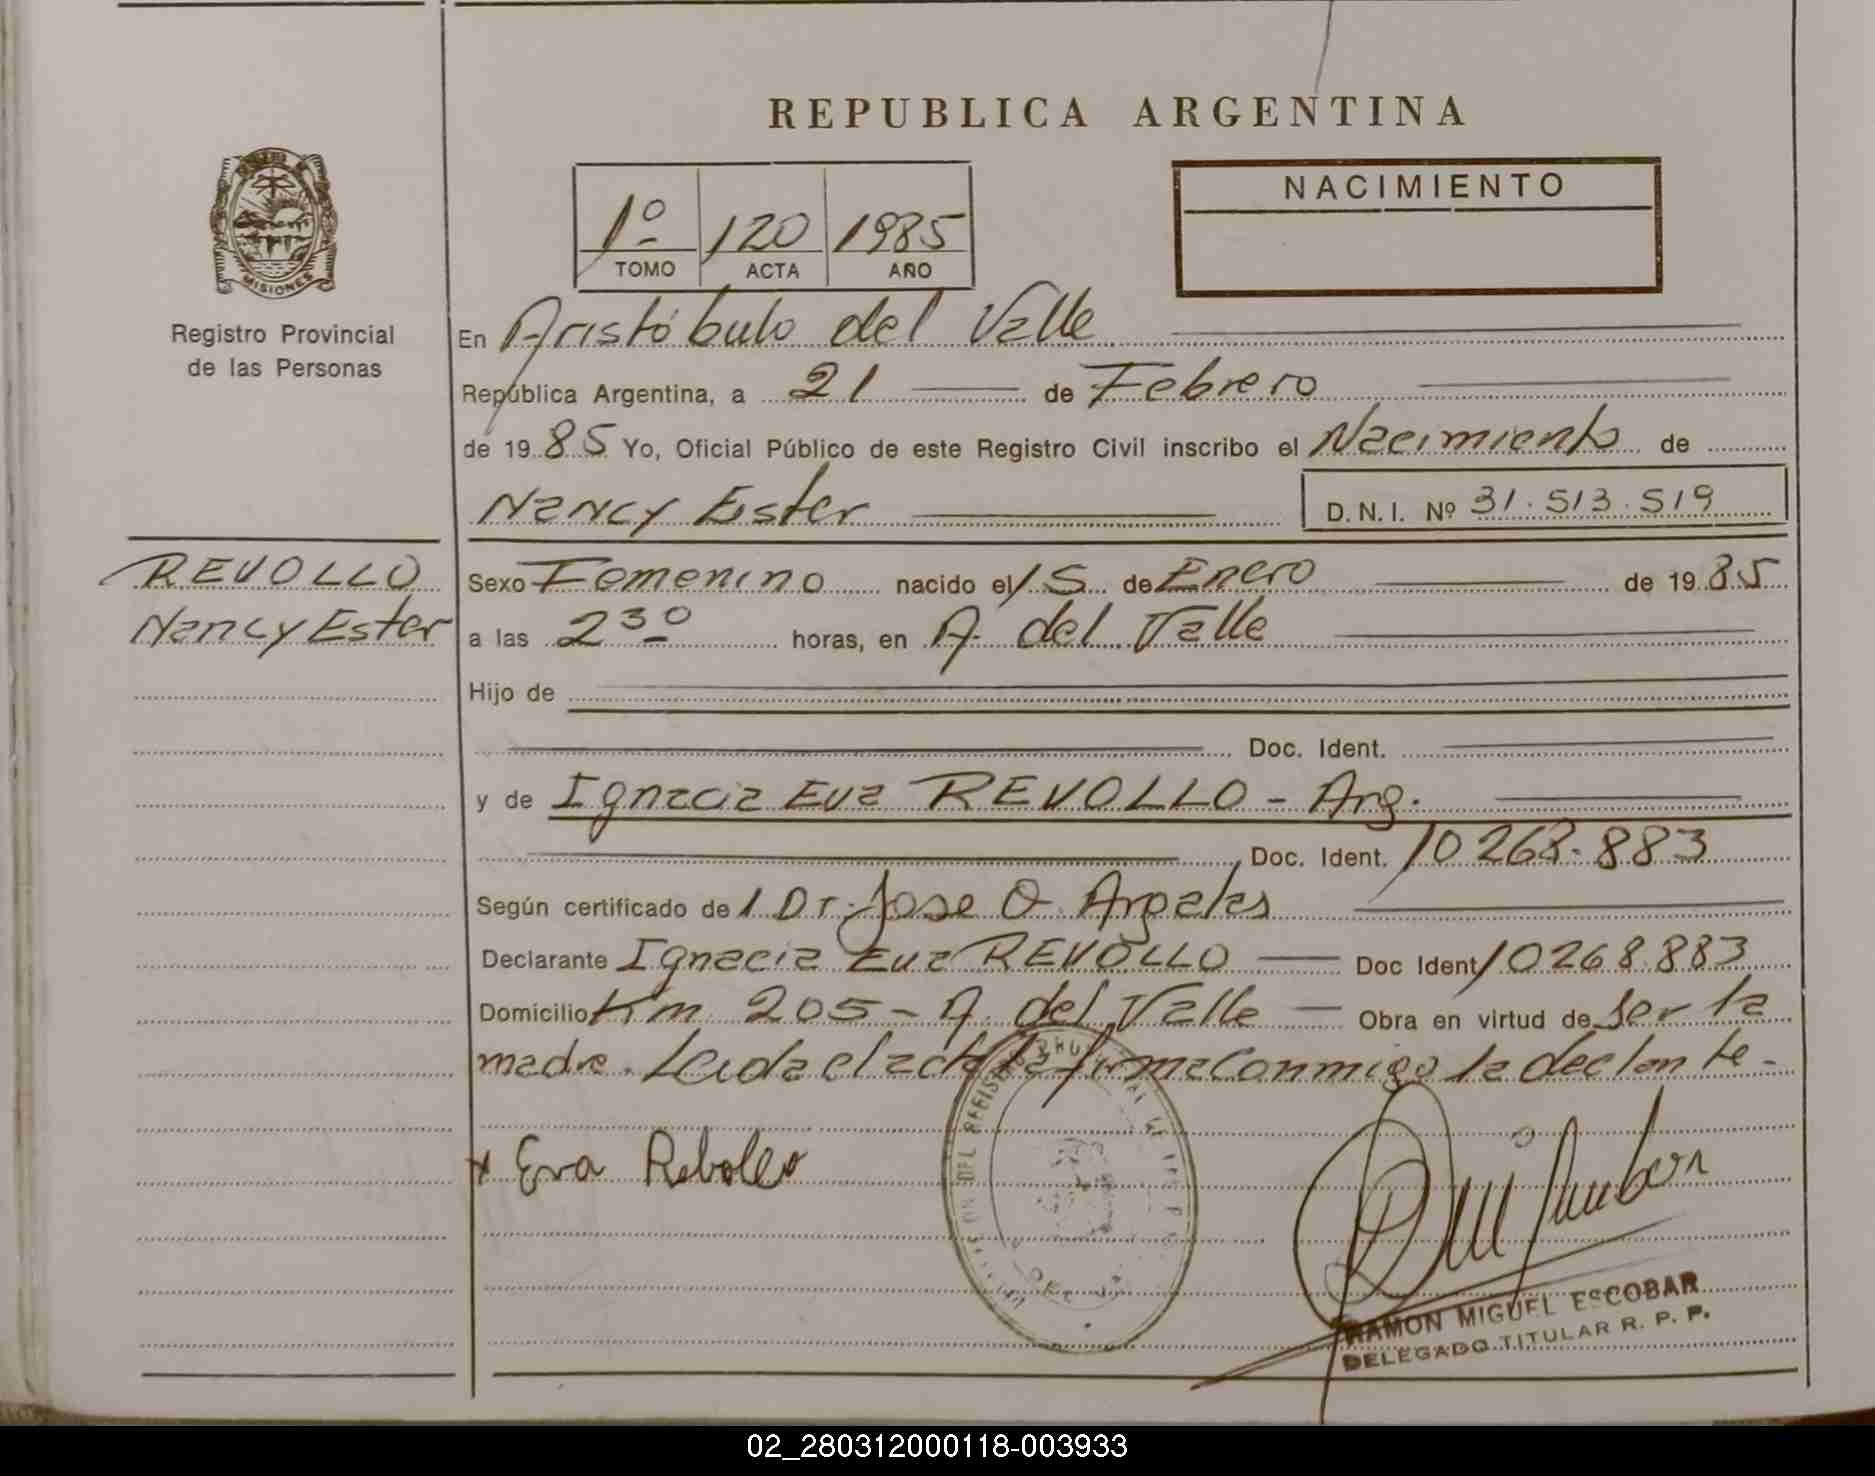 REPUBLICA ARGENTINA
1º 120 1985
TOMO ACTA AÑO
NACIMIENTO
MISIONES
Registro Provincial
de las Personas
En Aristóbulo del Valle
República Argentina, a 21 de Febrero
de 1985 Yo, Oficial Público de este Registro Civil inscribo el Nacimiento de
Nancy Ester D.N.I. Nº 31.513.519
REVOLLO
Nancy Ester
Sexo Femenino nacido el 15 de Enero de 1985
a las 2 30 horas, en A. del Valle
Hijo de
Doc. Ident.
y de Ignacia Eva REVOLLO - Arg.
Doc. Ident. 10268.883
Según certificado de 1 Dr. Jose O.
Declarante Ignacia Eva REVOLLO Doc Ident 10268.883
Domicilio Km 205 - A. del Valle Obra en virtud de ser la
madre. Leida el acta la firma conmigo la declante -
x Eva Rebollo
RAMON MIGUEL ESCOBAR
DELEGADO TITULAR R. P. P.
02_280312000118-003933